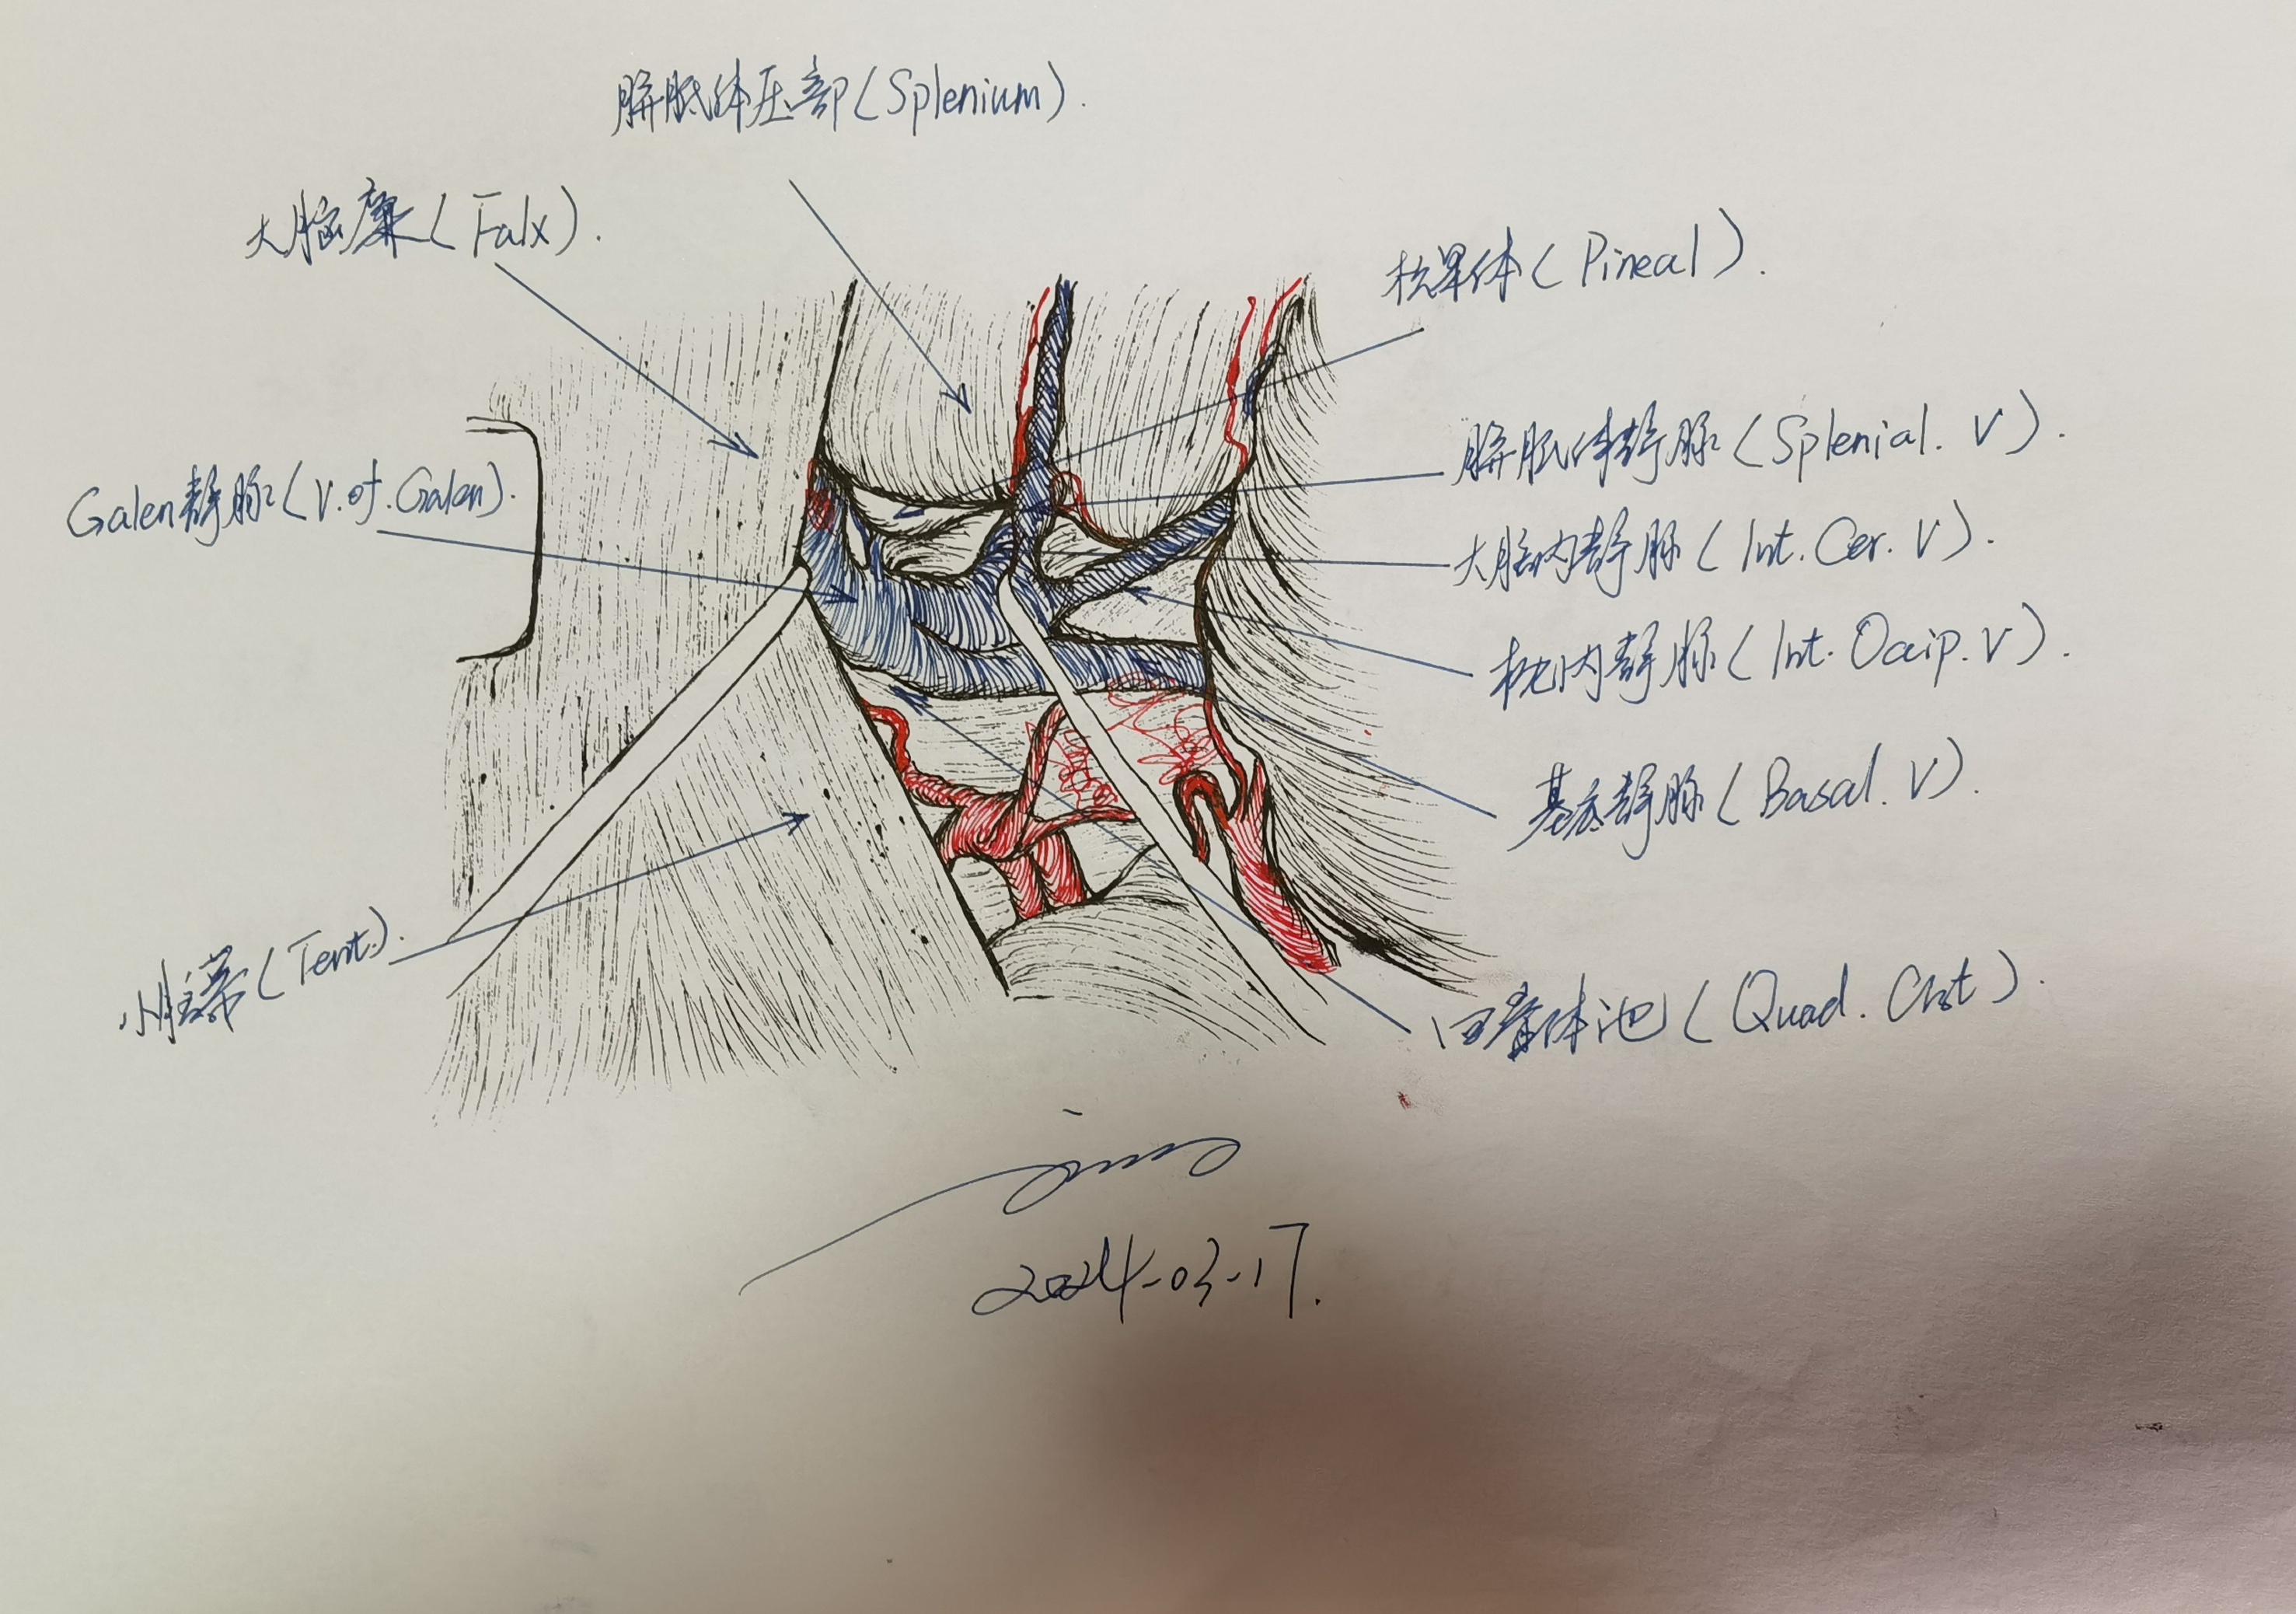 胼胝体压部(Splenium).
大脑廉(Falx).
松果体(Pineal).
Galen静脉(V.of.Galen).
胼胝体静脉(Splenial.V).
大脑内静脉(Int.Cer.V).
枕内静脉(Int.Occip.V).
基底静脉(Basal.V).
小脑幕(Tent.).
四叠体池(Quad.Cist).
2024-03-17.